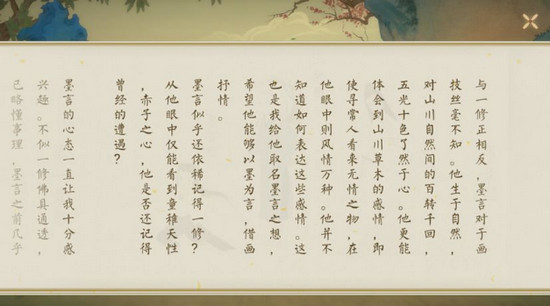 与一修正相反，墨言对于画
技丝毫不知。他生于自然，
对山川自然间的百转千回，
五光十色了然于心。他更能
体会到山川草木的感情，即
使寻常人看来无情之物，在
他眼中则风情万种。他并不
知道如何表达这些感情。这
也是我给他取名墨言之想，
希望他能够以墨为言，借画
抒情。
墨言似乎还依稀记得一修？
从他眼中仅能看到童稚天性
，赤子之心，他是否还记得
曾经的遭遇？
墨言的心态一直让我十分感
兴趣。不似一修佛具通透，
已略懂事理，墨言之前几乎